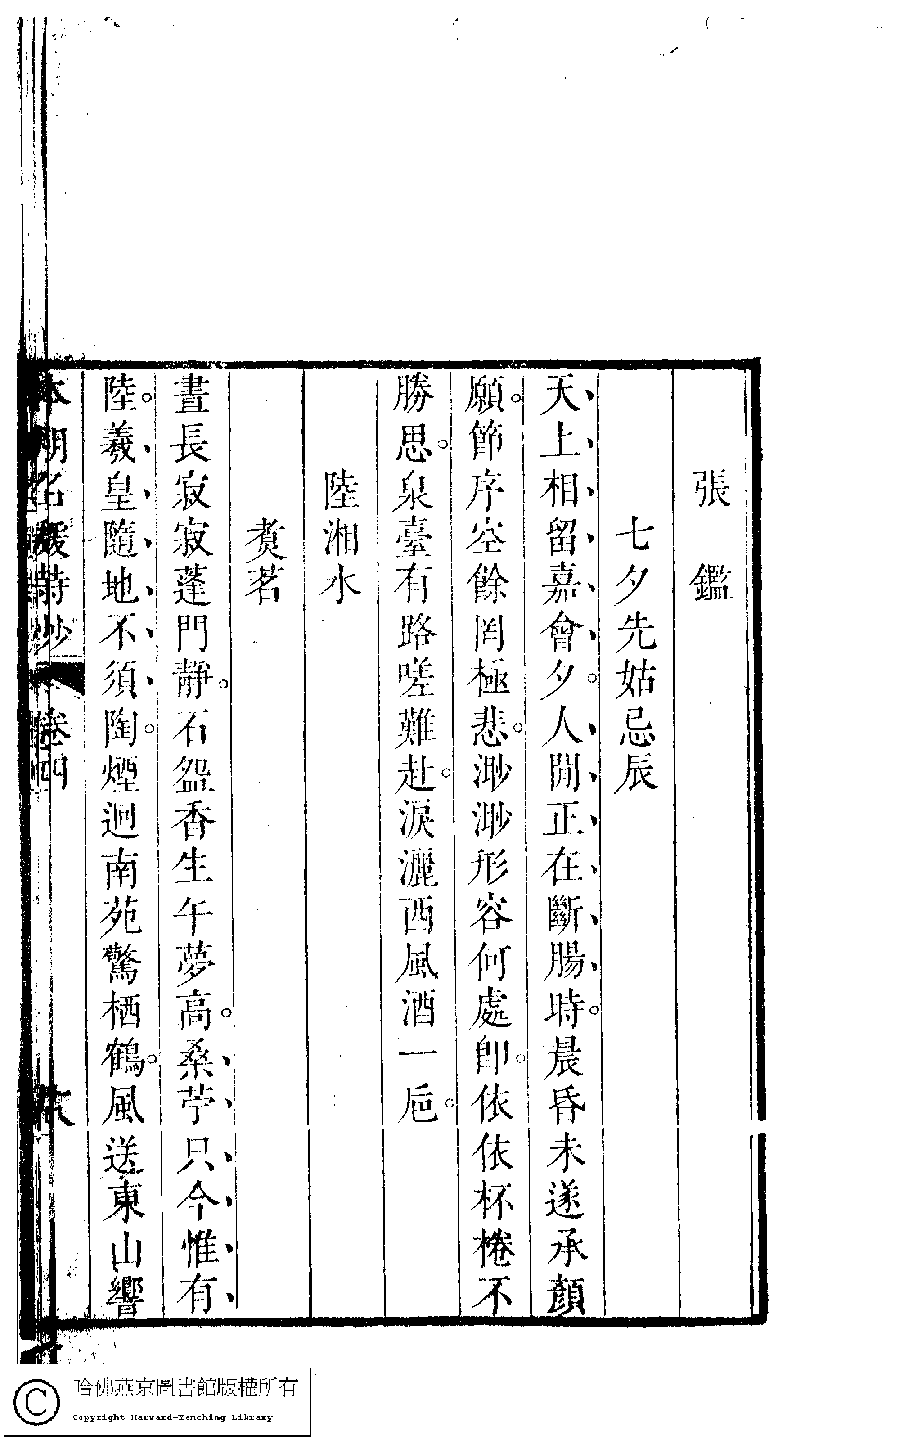 張鑑
七夕先姑忌辰
天上相留嘉會夕。人閒正在斷腸時。晨昏未遂承顏
願。節序空餘罔極悲。渺渺形容何處卽。依依杯棬不
勝思。泉臺有路嗟難赴。淚灑西風酒一巵。
陸湘水
煑茗
晝長寂寂蓬門靜。石盌香生午夢高。桑苧只今惟有
陸。羲皇隨地不須陶。煙迴南苑驚栖鶴。風送東山響
本朝名媛詩鈔 卷四
哈佛燕京圖書館版權所有
Copyright Harvard-Yenching Library